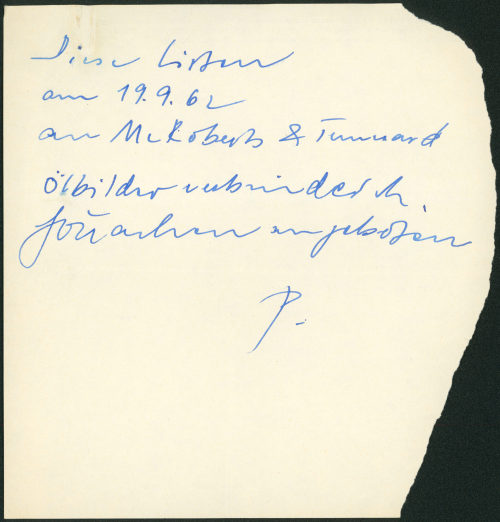 Diese Listen
am 19.9.62
an McRoberts & Tunnard
Ölbilder unverbindlich
Gouachen angeboten
P.